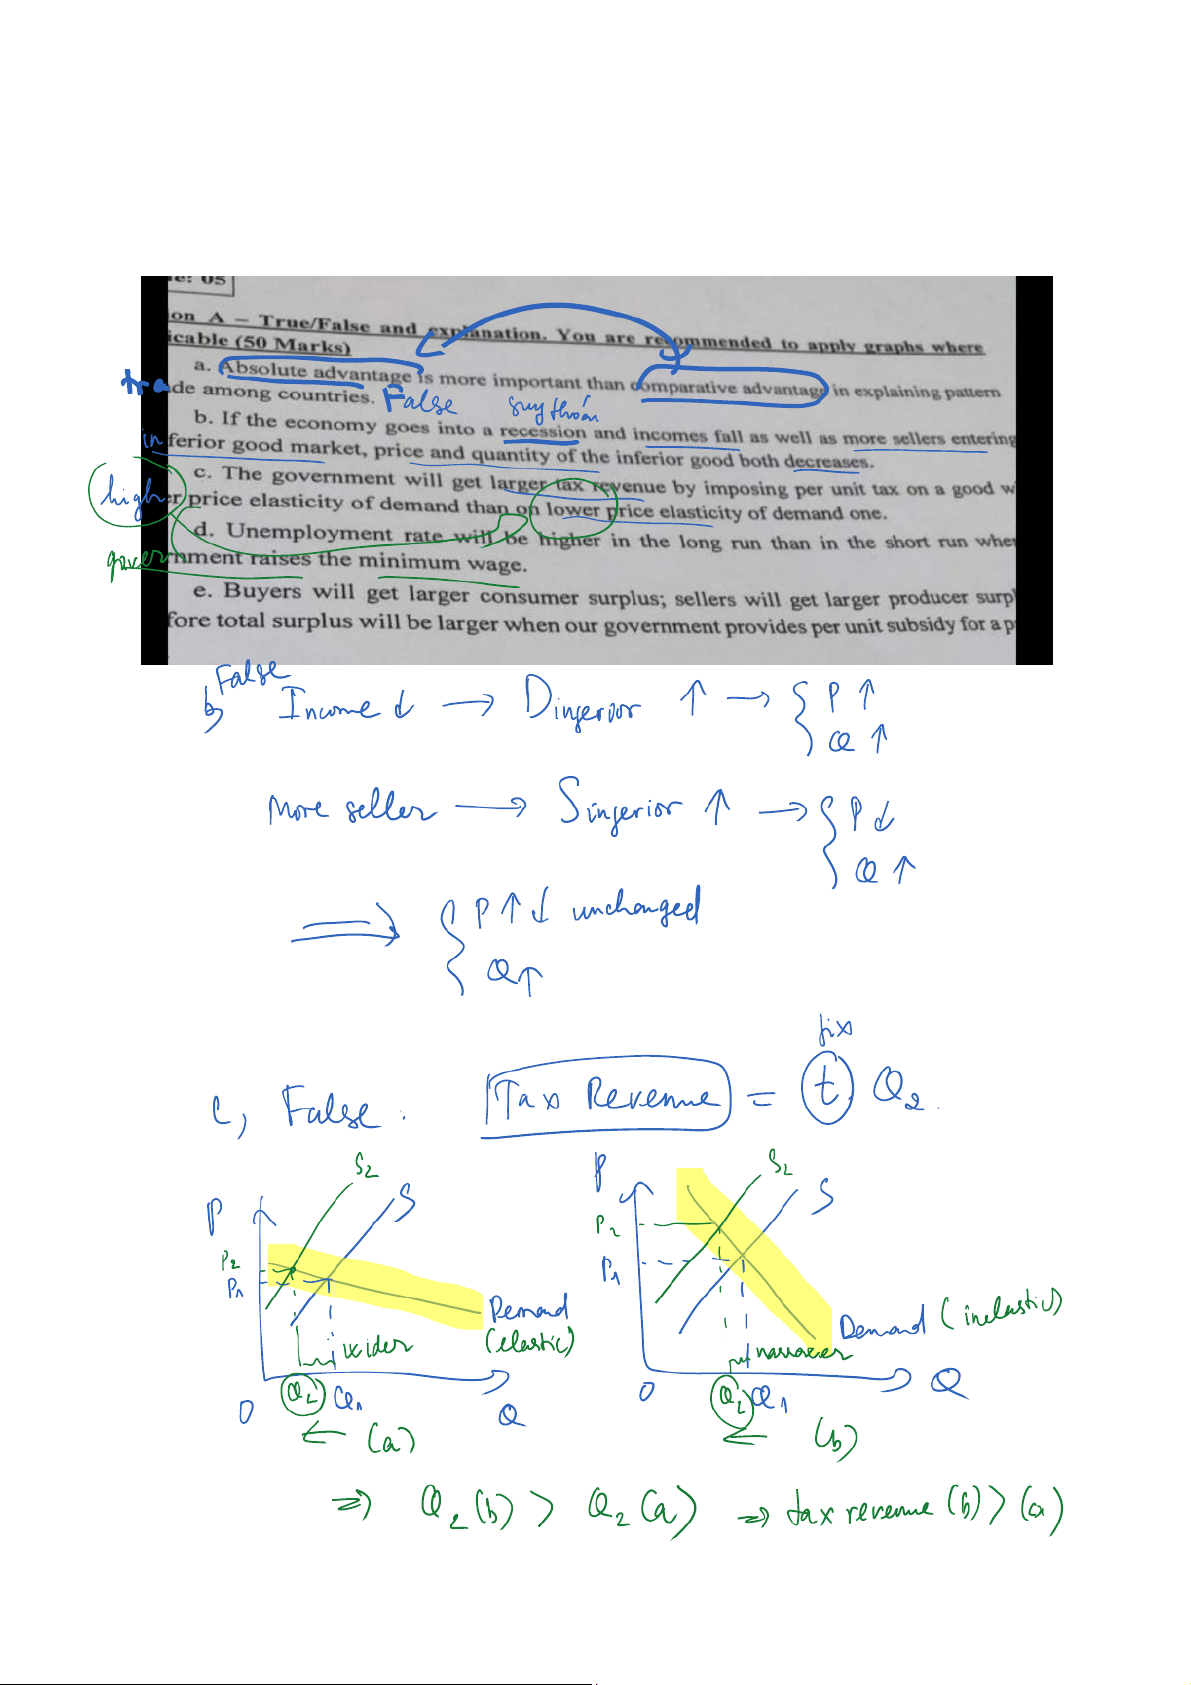 ne: 05
ion A – True/False and explanation. You are recommended to apply graphs where
icable (50 Marks)
a. Absolute advantage is more important than comparative advantage in explaining pattern
trade among countries. False suy thoái
b. If the economy goes into a recession and incomes fall as well as more sellers entering
inferior good market, price and quantity of the inferior good both decreases.
c. The government will get larger tax revenue by imposing per unit tax on a good w
higher price elasticity of demand than on lower price elasticity of demand one.
d. Unemployment rate will be higher in the long run than in the short run when
government raises the minimum wage.
e. Buyers will get larger consumer surplus; sellers will get larger producer surpl
fore total surplus will be larger when our government provides per unit subsidy for a p
False
b, Income ↓ → D inferior ↑ → { P ↑
Q ↑
More seller → S inferior ↑ → { P ↓
Q ↑
⇒ { P ↑ ↓ unchanged
Q ↑
fix
c, False. Tax Revenue = t Q2.
P S2 S
P2
P1
Demand
(elastic)
wider
O Q2 Q1 Q
← (a)
P S2 S
P2
P1
Demand (inelastic)
narrower
O Q2 Q1 Q
← (b)
⇒ Q2 (b) > Q2 (a) ⇒ tax revenue (b) > (a)